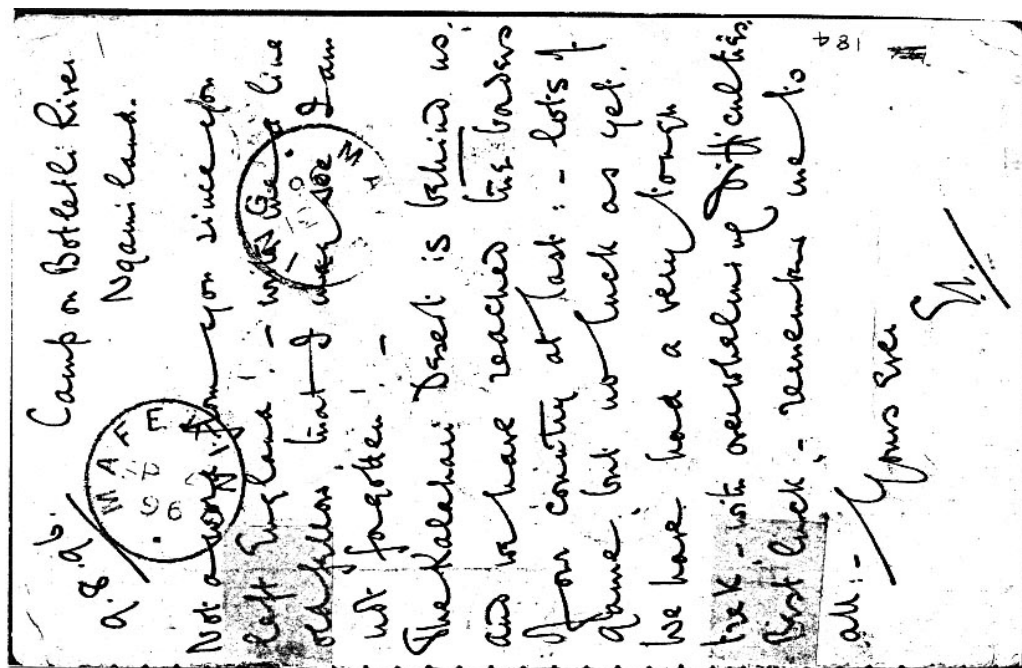 9.8.96. Camp on Botletli River
Ngamiland.
Not a word from you since you
left England - write me a line
old fellow that I may see I am
not forgotten. -
The Kalahari Desert is behind us.
and we have reached the borders
of our country at last: - lots of
game but no luck as yet.
We have had a very tough
trek - with overwhelming difficulties.
Best luck - remember me to
all: -
Yours Ever
MAFEKING
96
184